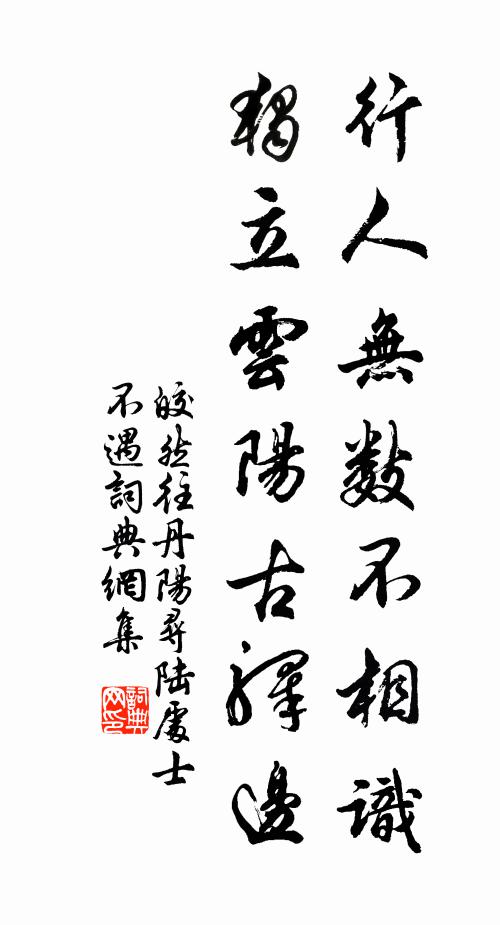 行人無数不相識
獨立雲陽古驛邊
皎然往丹陽尋陸處士
不遇詞典網集
詞典網印